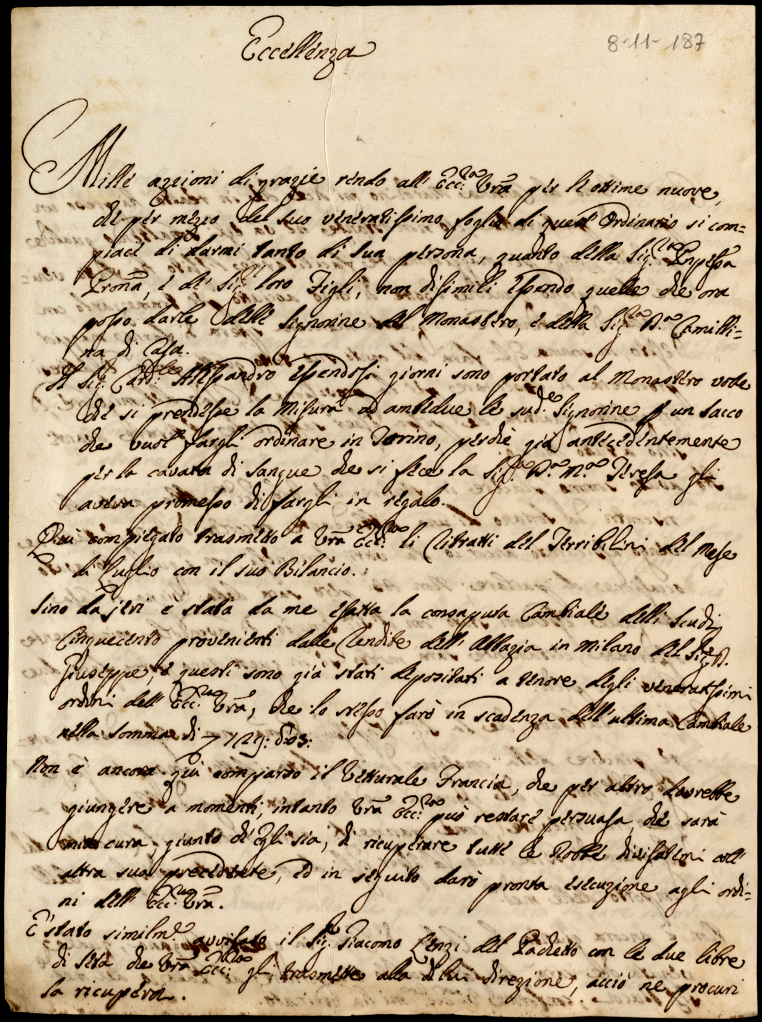 Eccellenza
8-11-187
Mille azzioni di grazie rendo all' Ecc:za Vra per le ottime nuove,
che per mezzo del suo veneratissimo foglio di quest' Ordinario si com-
piace di darmi tanto di sua persona, quanto della Sig:ra Pnpessa
Prona, e de' Sig:ri loro Figli, non dissimili essendo quelle che ora
posso darle delle Signorine del Monastero, e della Sig:ra D:a Camilli-
na di Casa.
Il Sig: Card:le Alessandro essendosi giorni sono portato al Monastero vode
che si prendesse la misura ad ambidue le sud:e Signorine p un sacco
che vuol fargli ordinare in Torino, perchè già antecedentemente
per la cavata di sangue che si fece la Sig:ra D:a M:a Teresa gli
aveva promesso di fargli in regalo.
Qui compiegato trasmetto a Vra Ecc:za li Ristratti del Terribilini del Mese
di Luglio con il suo Bilancio.
Sino da jeri è stata da me esatta la consaputa Cambiale delli Scudi
Cinquecento provenienti dalle Rendite dell' Abbazia in Milano del Sig:re D.
Giuseppe, e questi sono già stati depositati a tenore degli veneratissimi
ordini dell' Ecc:za Vra, che lo stesso farò in scadenza dell' ultima Cambiale
nella somma di
Non è ancora quì comparso il Vetturale Francia, che per altro dovrebbe
giungere a momenti, intanto Vra Ecc:za può restare persuasa, che sarà
mia cura, giunto ch' egli sia, di ricuperare tutte le Robbe divisatemi coll'
altra sua precedente, ed in seguito darò pronta esecuzione agli ordi-
ni dell' Ecc:za Vra.
È stato similme avvisato il Sig:r Giacomo Lenzi del Pachetto con le due libre
di seta che Vra Ecc:za gli trasmette alla di lui direzione, acciò ne procuri
la ricupera.